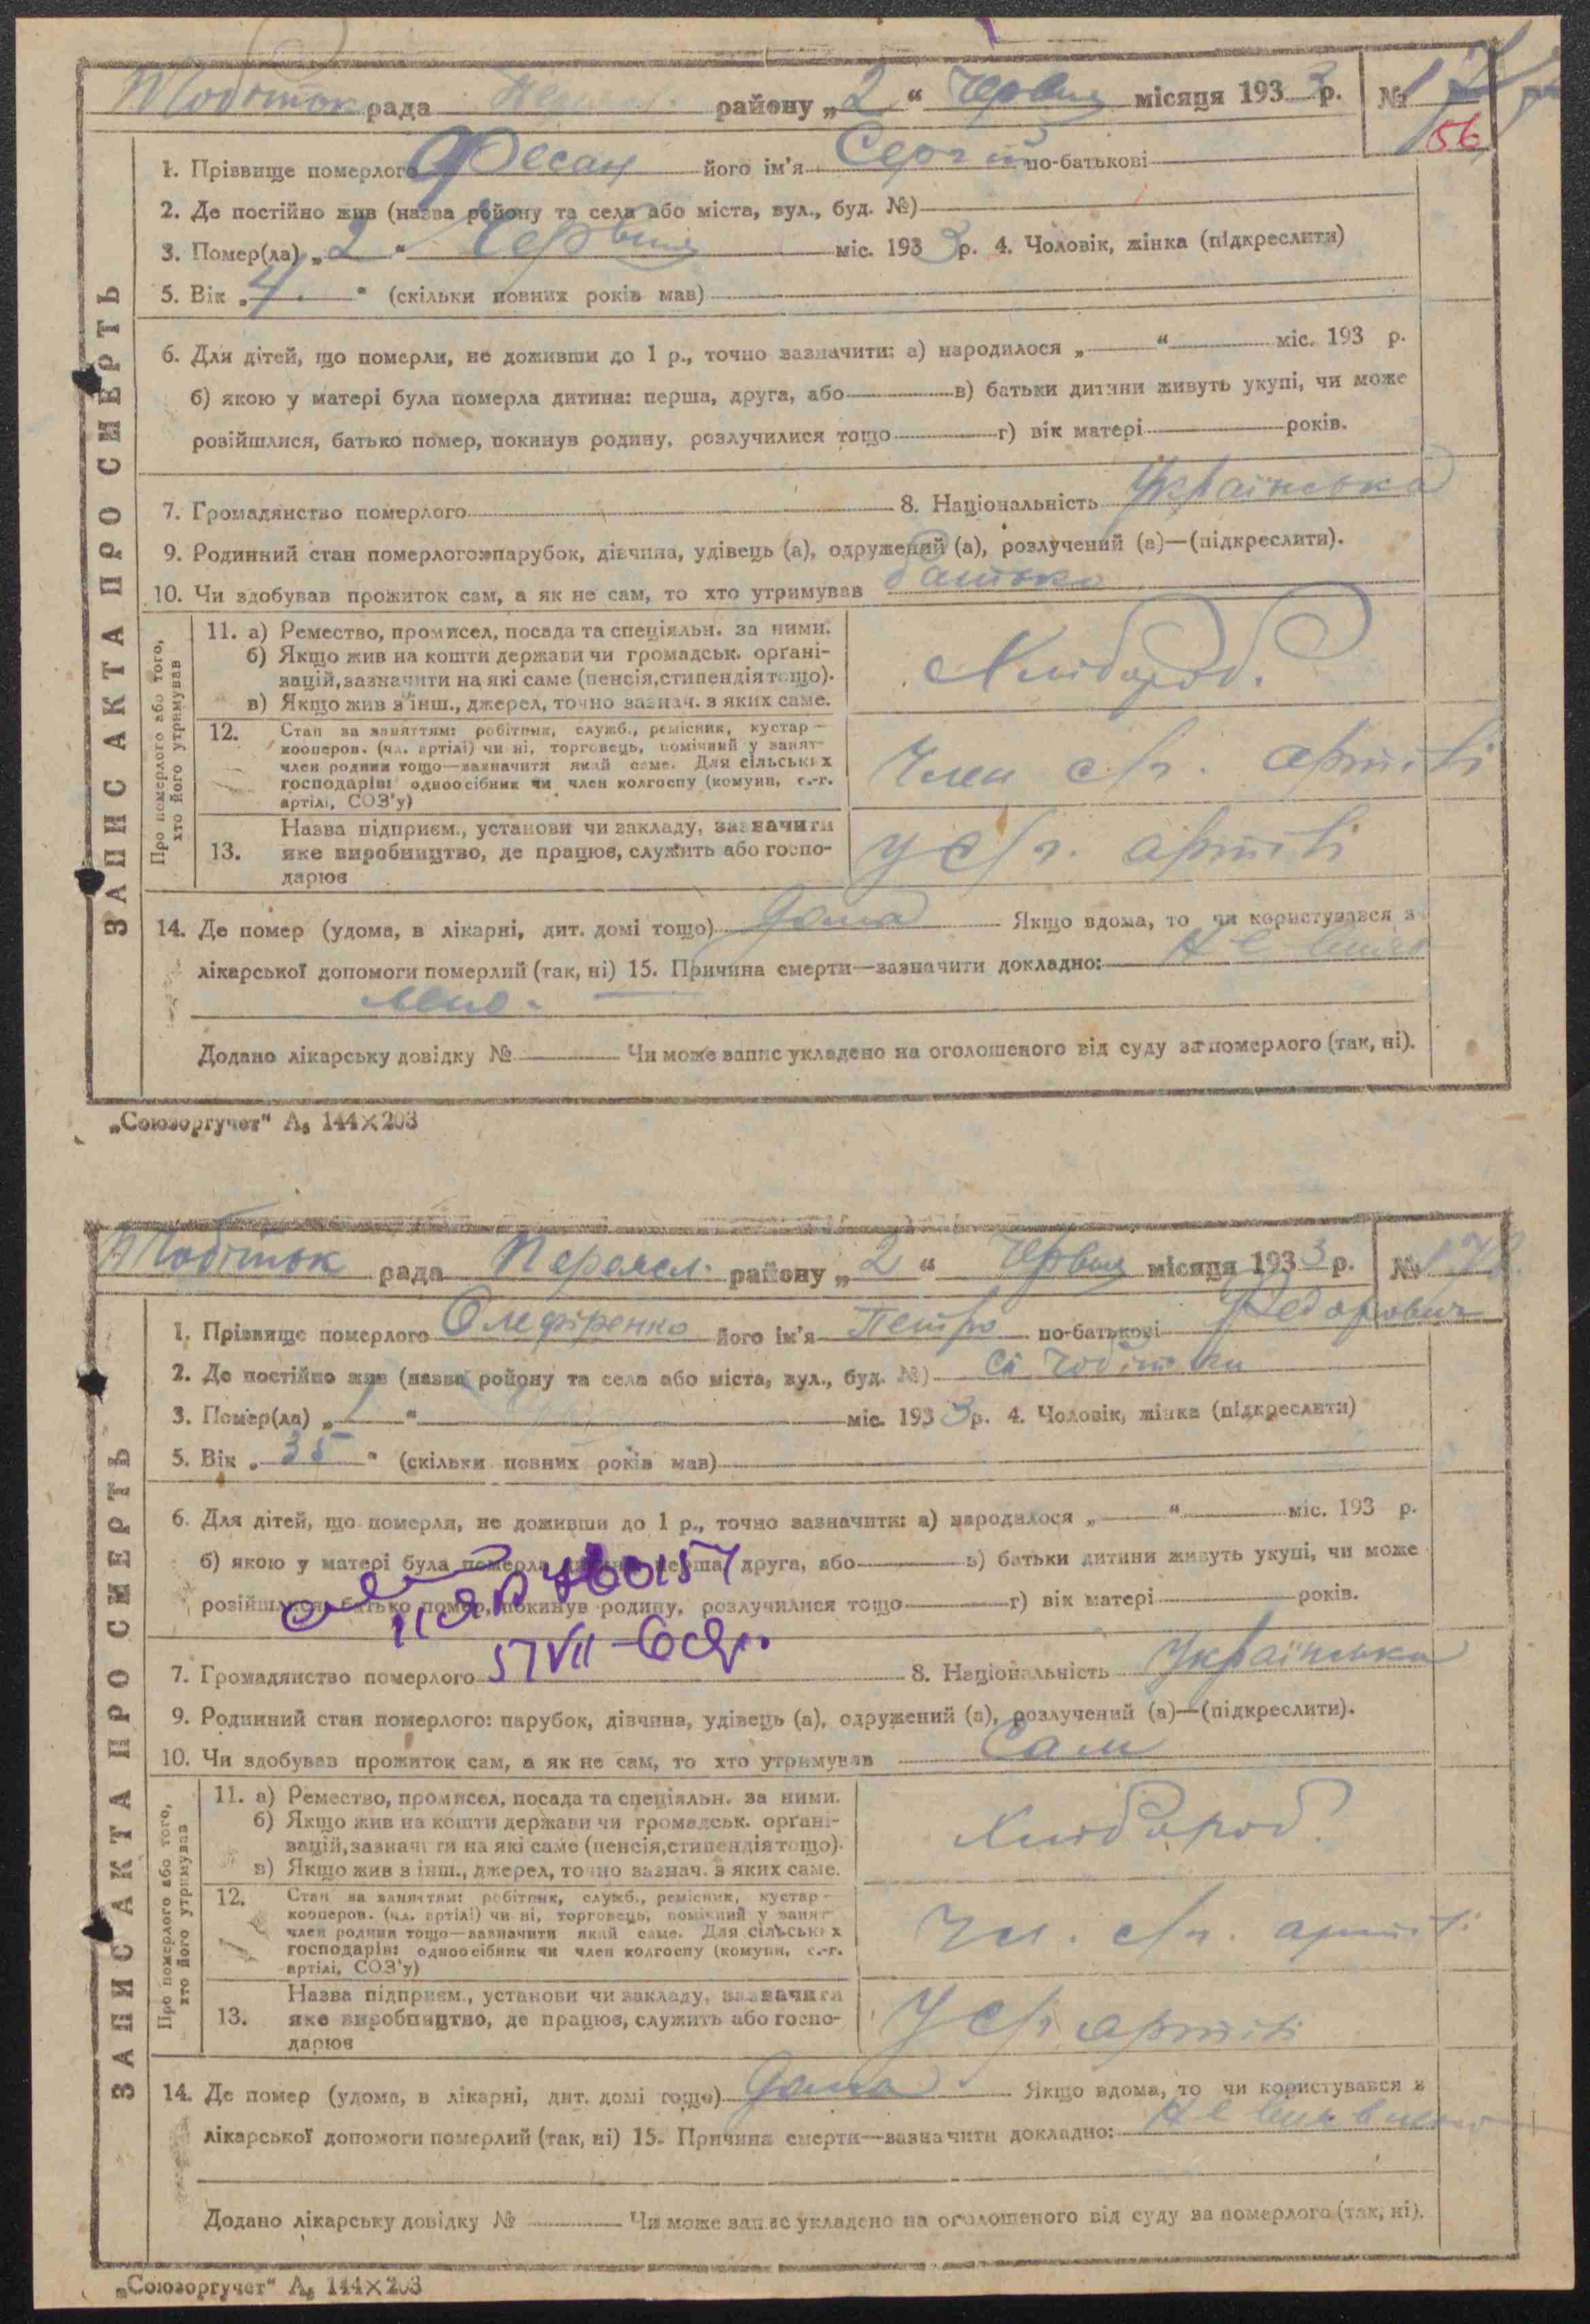 рада района „2“ Червня місяця 1933 р. №
56
1. Прізвище померлого Фесан його ім'я Сергій по-батькові
2. Де постійно жив (назва району та села або міста, вул., буд. №)
3. Помер(ла) „2“ Червня міс. 1933 р. 4. Чоловік, жінка (підкреслити)
5. Вік „4“ (скільки повних років мав)
6. Для дітей, що померли, не доживши до 1 р., точно зазначити: а) народилося „ “ міс. 193 р.
б) якою у матері була померла дитина: перша, друга, або в) батьки дитини живуть укупі, чи може
розійшлися, батько помер, покинув родину, розлучилися тощо г) вік матері років.
7. Громадянство померлого 8. Національність Українська
9. Родинний стан померлого: парубок, дівчина, удівець (а), одружений (а), розлучений (а)—(підкреслити).
10. Чи здобував прожиток сам, а як не сам, то хто утримував батько
ЗАПИС АКТА ПРО СМЕРТЬ
Про померлого або того, хто його утримував
11. а) Ремество, промисел, посада та спеціяльн. за ними.
б) Якщо жив на кошти держави чи громадськ. орґані-
зацій, зазначити на які саме (пенсія, стипендія тощо).
в) Якщо жив з інш., джерел, точно зазнач. з яких саме.
Хлібороб.
12. Стан за заняттям: робітник, служб., ремісник, кустар—
кооперов. (чл. артілі) чи ні, торговець, помічний у занят-
член родини тощо—зазначити який саме. Для сільських
господарів: одноосібник чи член колгоспу (комуни, с.-г.
артілі, СОЗ'у)
Член с/г. артілі
13. Назва підприєм., установи чи закладу, зазначити
яке виробництво, де працює, служить або госпо-
дарює
у с/г. артілі
14. Де помер (удома, в лікарні, дит. домі тощо) дома Якщо вдома, то чи користувався з
лікарської допомоги померлий (так, ні) 15. Причина смерти—зазначити докладно: Не вияв
лено.
Додано лікарську довідку № Чи може запис укладено на оголошеного від суду за померлого (так, ні).
„Союзоргучет“ А₅ 144×203
рада Переясл. району „2“ Червня місяця 1933 р. №
1. Прізвище померлого Олефіренко його ім'я Петро по-батькові Федорович
2. Де постійно жив (назва району та села або міста, вул., буд. №)
3. Помер(ла) „ “ міс. 1933 р. 4. Чоловік, жінка (підкреслити)
5. Вік „35“ (скільки повних років мав)
6. Для дітей, що померли, не доживши до 1 р., точно зазначити: а) народилося „ “ міс. 193 р.
б) якою у матері була померла дитина: перша, друга, або в) батьки дитини живуть укупі, чи може
розійшлися, батько помер, покинув родину, розлучилися тощо г) вік матері років.
7. Громадянство померлого 8. Національність Українська
9. Родинний стан померлого: парубок, дівчина, удівець (а), одружений (а), розлучений (а)—(підкреслити).
10. Чи здобував прожиток сам, а як не сам, то хто утримував Сам
ЗАПИС АКТА ПРО СМЕРТЬ
Про померлого або того, хто його утримував
11. а) Ремество, промисел, посада та спеціяльн. за ними.
б) Якщо жив на кошти держави чи громадськ. орґані-
зацій, зазначити на які саме (пенсія, стипендія тощо).
в) Якщо жив з інш., джерел, точно зазнач. з яких саме.
Хлібороб.
12. Стан за заняттям: робітник, служб., ремісник, кустар—
кооперов. (чл. артілі) чи ні, торговець, помічний у занят-
член родини тощо—зазначити який саме. Для сільських
господарів: одноосібник чи член колгоспу (комуни, с.-г.
артілі, СОЗ'у)
Чл. с/г. артілі
13. Назва підприєм., установи чи закладу, зазначити
яке виробництво, де працює, служить або госпо-
дарює
У с/г артілі
14. Де помер (удома, в лікарні, дит. домі тощо) дома. Якщо вдома, то чи користувався з
лікарської допомоги померлий (так, ні) 15. Причина смерти—зазначити докладно: Не виявлено
Додано лікарську довідку № Чи може запис укладено на оголошеного від суду за померлого (так, ні).
„Союзоргучет“ А₅ 144×203